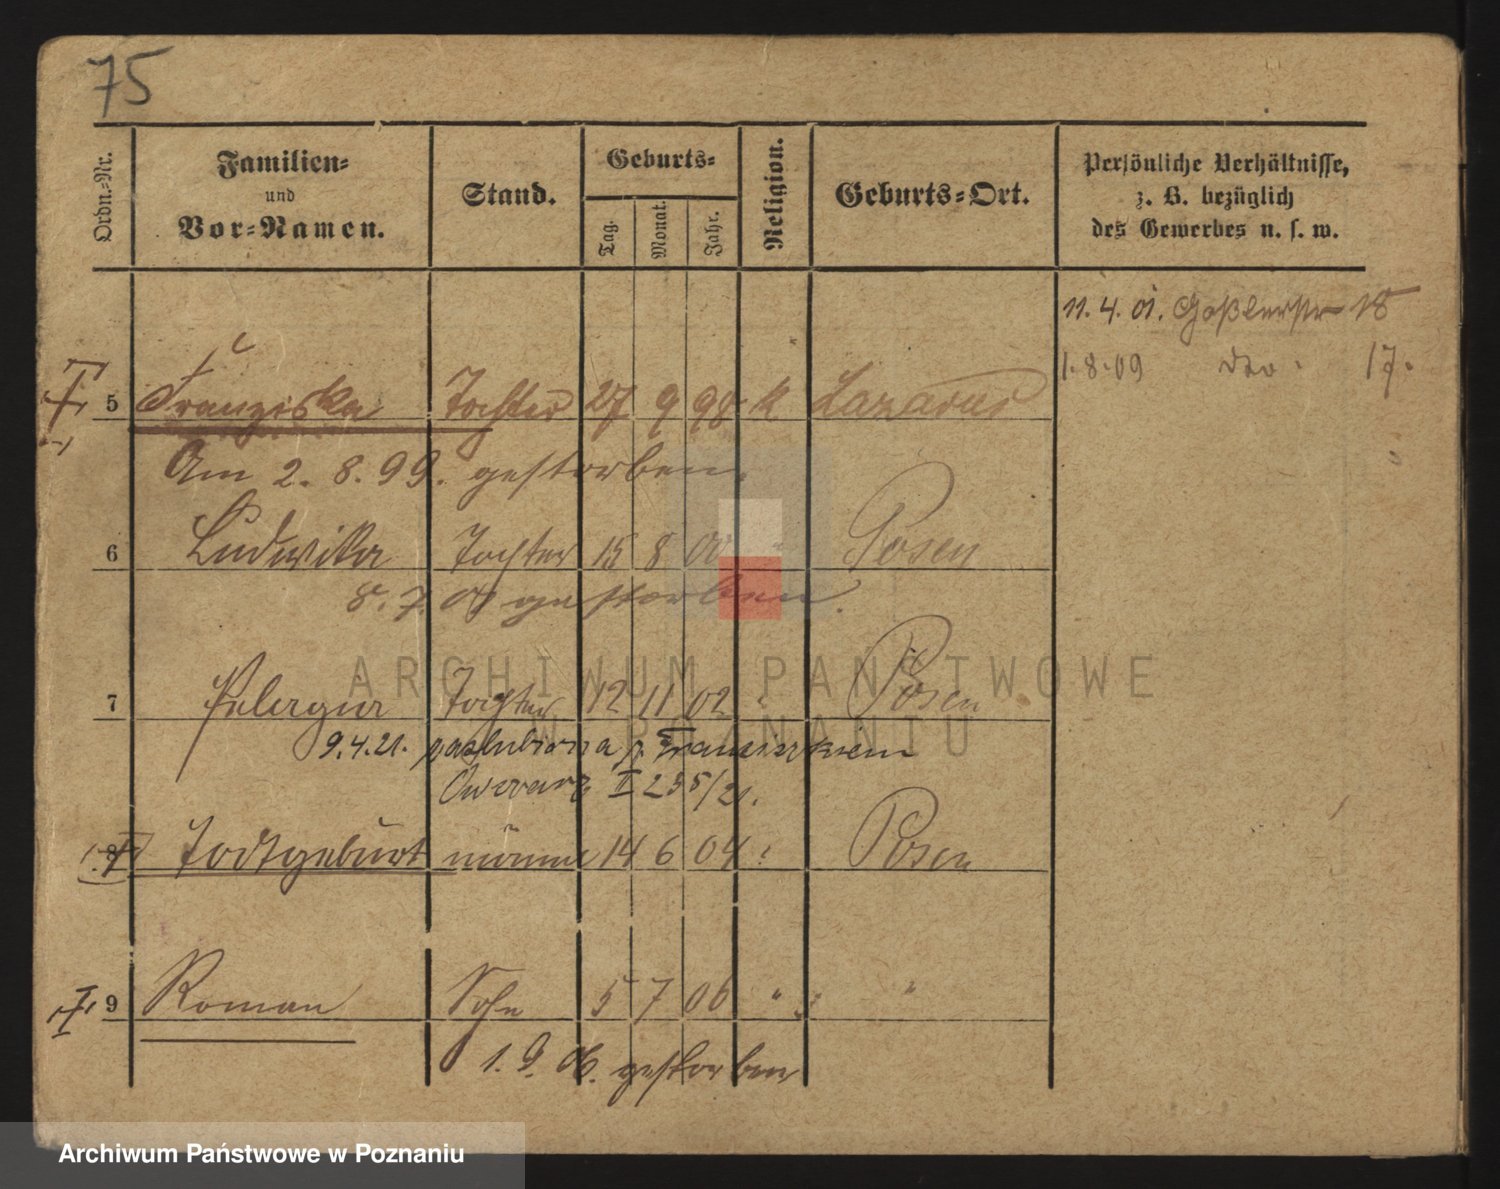 75
Ordn.-Nr.
Familien-
und
Vor-Namen.
Stand.
Geburts-
Tag.
Monat.
Jahr.
Religion.
Geburts-Ort.
Persönliche Verhältnisse,
z. B. bezüglich
des Gewerbes u. s. w.
11. 4. 01. Goßlerstr 18
1. 8. 09 dto. 17.
5 Franziska Tochter 27 9 98 k Lazarus
Am 2. 8. 99. gestorben.
6 Ludwika Tochter 15 8 00 Posen
8. 7. gestorben.
7 Pelagia Tochter 12 11 02 " Posen
9.4.21. zaślubiona z Franciszkiem
II 255/21.
8 Todtgeburt männl 14 6 04 Posen
9 Roman Sohn 5 7 06 " "
1. 9. 06. gestorben
ARCHIWUM PAŃSTWOWE
W POZNANIU
Archiwum Państwowe w Poznaniu